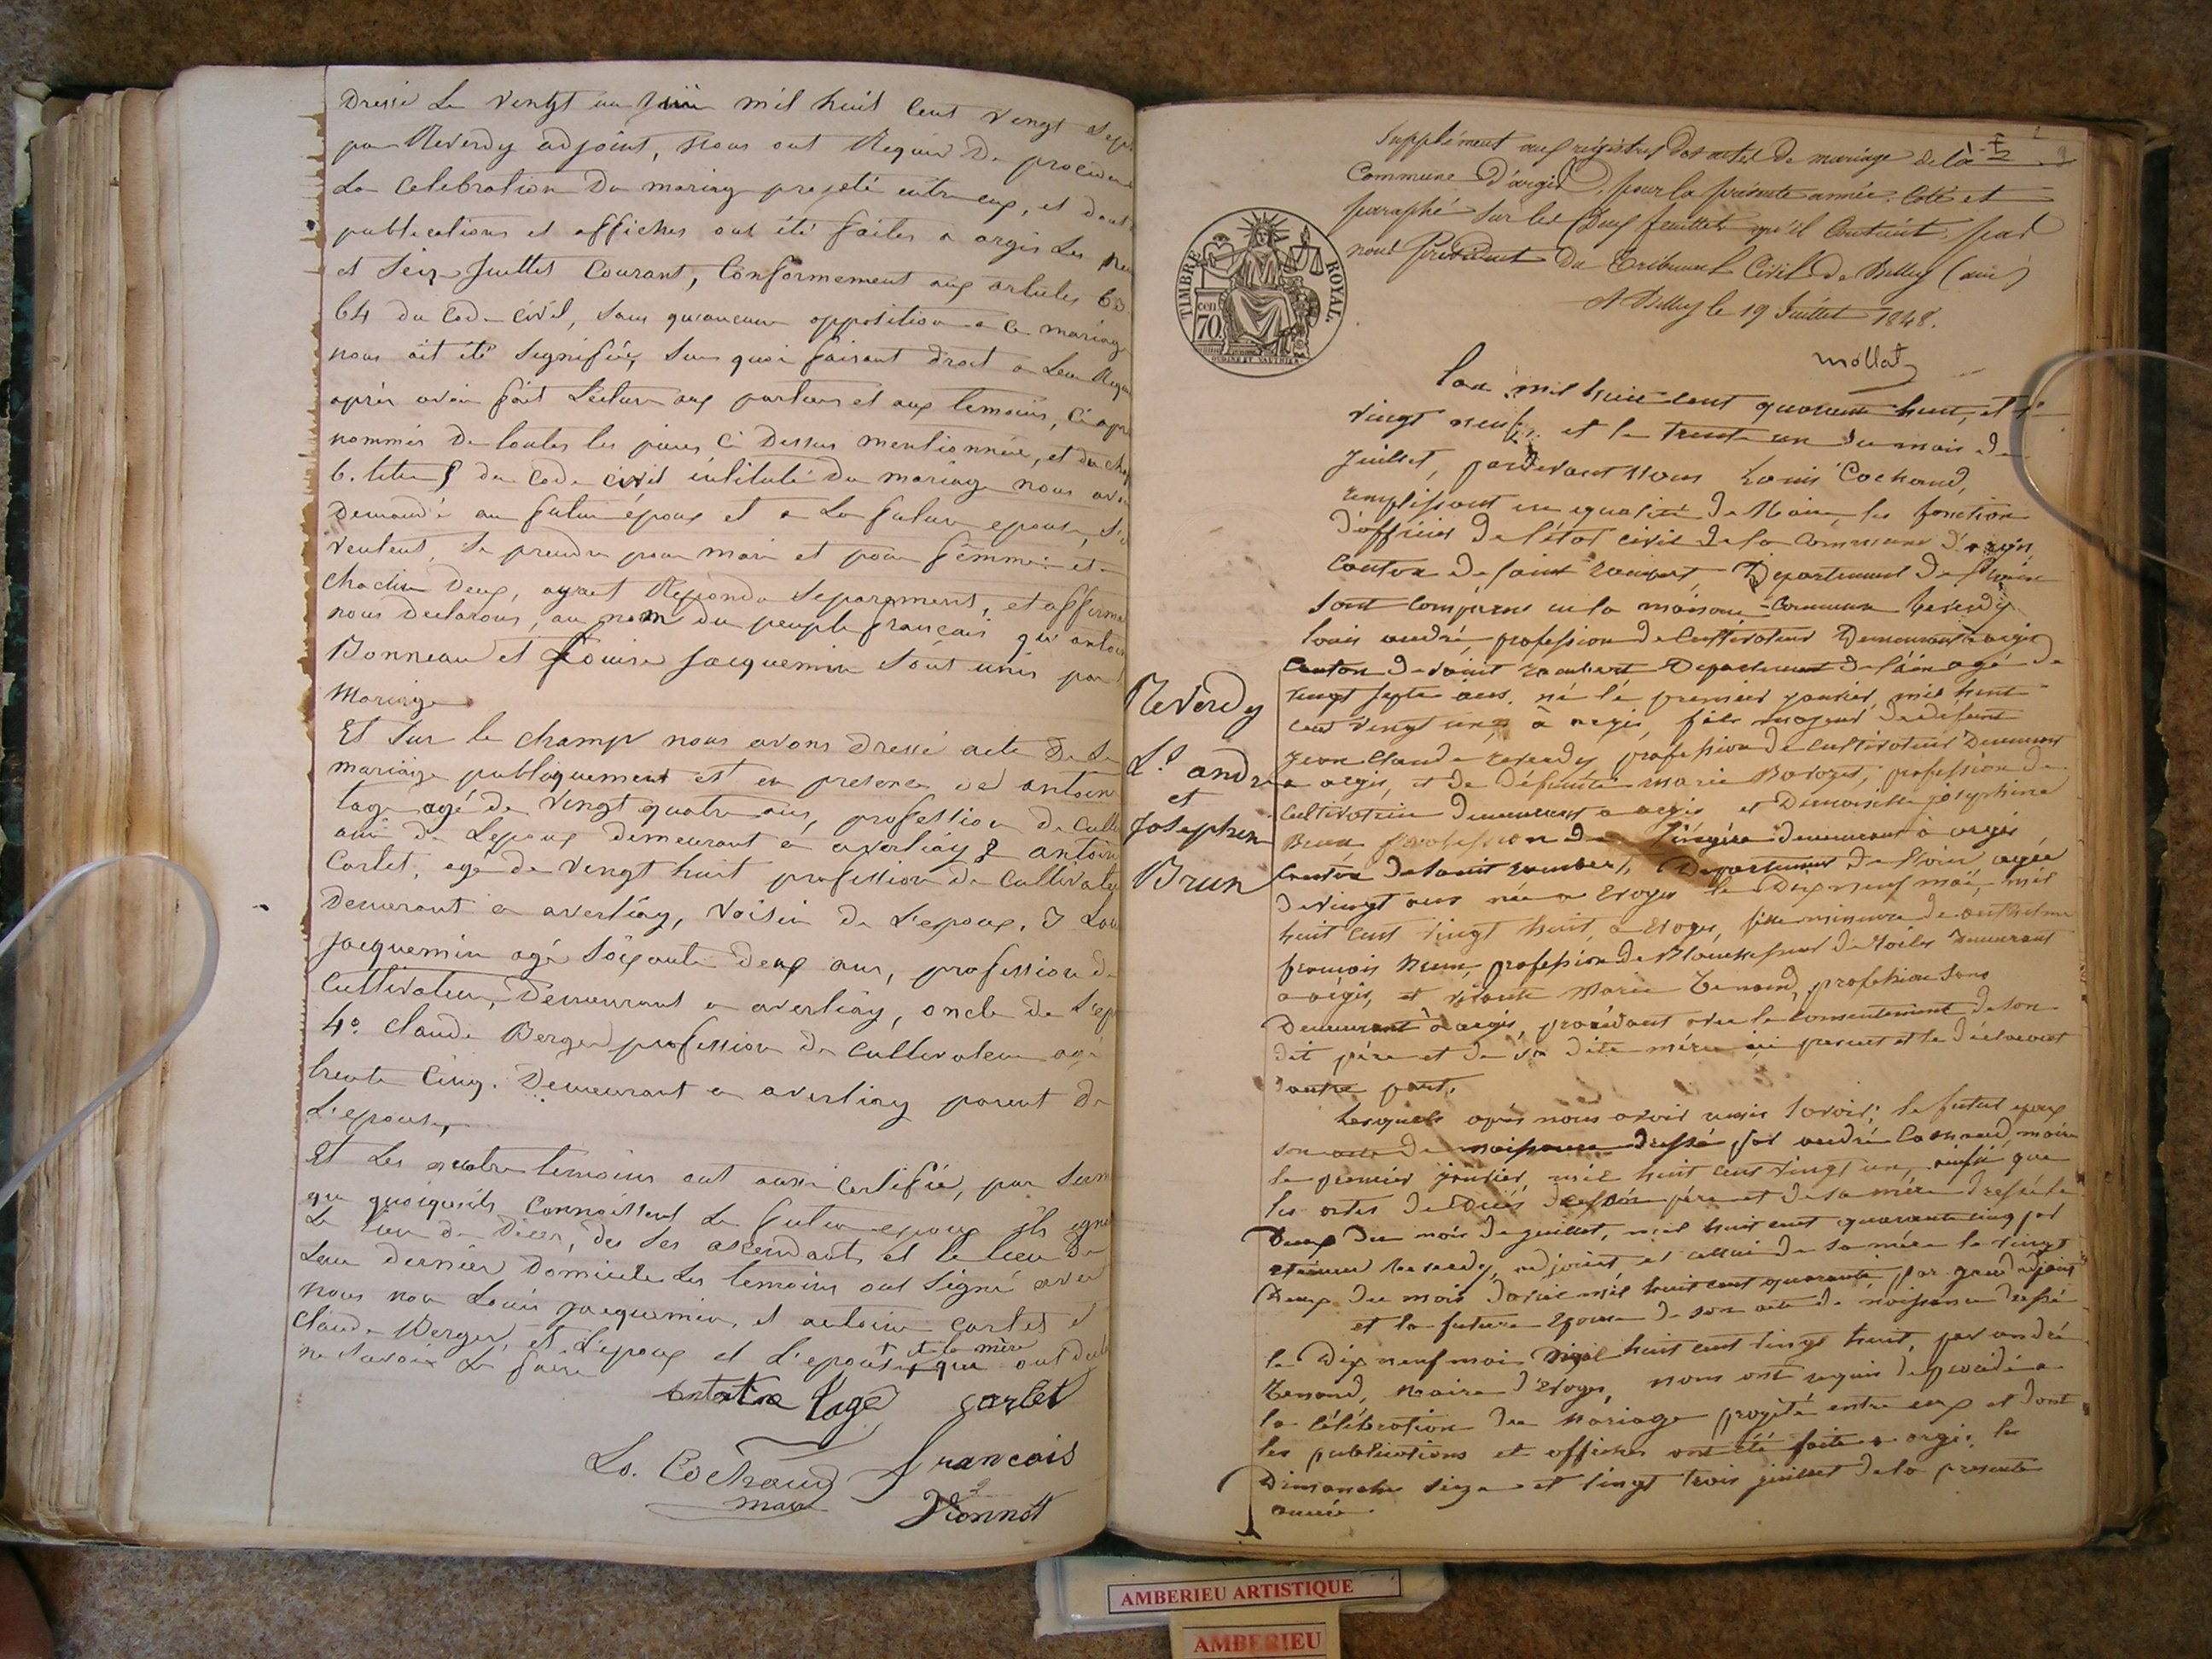 Dressé Le vingt un Juin mil huit Cent vingt Sept
par Reverdy adjoint, Nous ont Requis De proceder
La Celebration Du mariage projeté entre eux, et dont
publications et affiches ont été faites a argis Les
et Seize Juillet Courant, Conformement aux articles 63
64 du Code civil, Sans qu'aucune opposition a Ce mariage
nous ait été Signifiée, Sur quoi faisant droit a Leur
après avoir fait Lecture aux parties et aux temoins, Ci apres
nommés De toutes les pieces Ci Dessus mentionnée, et du chap
6. titre 5 du Code civil intitulé Du mariage nous avons
Demandé au futur époux et a La future epouse, S'ils
veulent, Se prendre pour mari et pour femme: et
Chacun Deux, ayant Repondu Separement, et affirmé
nous Declarons, au nom du peuple français qu'antoine
Bonneau et Louise Jacquemin Sont unis par
Mariage
Et Sur le champ nous avons Dressé acte De Le
mariage publiquement et en presence de antoine
tage agé de vingt quatre ans, profession de Culti
ami de L'epoux demeurant a averliay 2 antoine
Carlet, agé de vingt huit profession de Cultivateur
Demeurant a averliay, voisin de L'epoux, 3 Louis
Jacquemin agé Soixante deux ans, profession de
Cultivateur, Demeurant a averliay, oncle de L'ep
4º. Claude Berger profession de Cultivateur agé
trente Cinq. Demeurant a averliay parent de
L'epouse,
Et Les quatre temoins ont aussi Certifié, par Serm
que quoiqu'ils Connoissent Le futur epoux ils igno
Le lieu de Deces, de Ses ascendants et le lieu de
Leur dernier Domicile Les temoins ont Signé avec
nous non Louis Jacquemin, et antoine Carlet et
Claude Berger, et L'epoux et L'epouse et la mère que ont
ne Savoir Le faire
tage carlet
Lo. Cochaud francois
maire Vionnet
Supplément aux registres des actes de mariage de la
Commune d'argis, pour la présente année. Coté et
paraphé sur les Deux feuillets qu'il Contient, par
nous Président du Tribunal Civil de Belley (ain)
A Belley le 19 Juillet 1848.
mollat
TIMBRE ROYAL.
cen
70
Reverdy
Ls andré
et
Josephin
Brun
lan mil huit cent quarante huit, et le
vingt neuf, et le trente un du mois de
Juillet, pardevant Nous Louis Cochaud,
remplissant en qualité De Maire les fonction
d'officier De l'état civil de la Commune d'argis
Canton de Saint rambert, Departement de l'ain
Sont comparus en la maison Commune Reverdy
louis andré, profession de Cultivateur Demeurant a argis
Canton de Saint rambert Departement de l'ain agé de
vingt sept ans, né le premier janvier mil huit
cent vingt un a argis, fils majeur de défunt
Jean Claude reverdy profession de cultivateur Demeurant
a argis, et de défunte marie profession de
Cultivatrice demeurant a argis et Demoiselle josephine
Brun profession de lingère demeurant à argis,
Canton de Saint rambert, Departement de l'ain agée
de vingt ans née a evoges le Dix neuf mai, mil
huit cent vingt huit, a evoges, fille mineure de anthelme
françois brun, profession de de toiles Demeurant
a argis, et vivante Marie Tenand, profession Sans
Demeurant à argis, procédant avec le consentement de son
dit père et de sa dite mère ici present et le déclarant
dautre part.
Lesquels après nous avoir remis Savoir: le futur epoux
son acte de naissance dressé par andré maire
le premier janvier, mil huit cent vingt un, ainsi que
les actes de décès de son père et de sa mère dressé le
Deux du mois de juillet, mil huit cent quarante cinq par
reverdy, adjoint et cellui de sa mère le vingt
Deux du mois mil huit cent quarante par adjoint
et la future epouse de son acte de naissance dressé
le Dix neuf mai mil huit cent vingt huit, par andré
Tenand, Maire d'evoges, nous ont requis de procédé a
la célébration du Mariage projeté entre eux et dont
les publications et affiches ont été faite a argis, les
Dimanche Seize et vingt trois juillet de la presente
année
AMBERIEU ARTISTIQUE
AMBERIEU